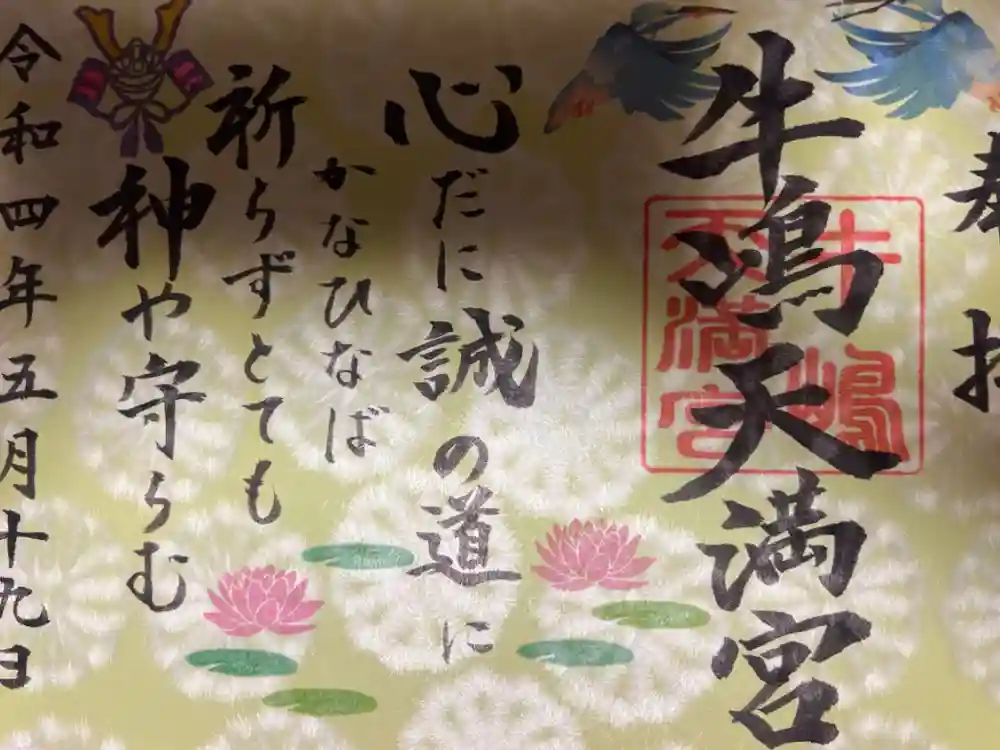 奉拝
牛嶋天満宮
牛嶋
天満宮
心だに誠の道に
かなひなば
祈らずとても
神や守らむ
令和四年五月十九日